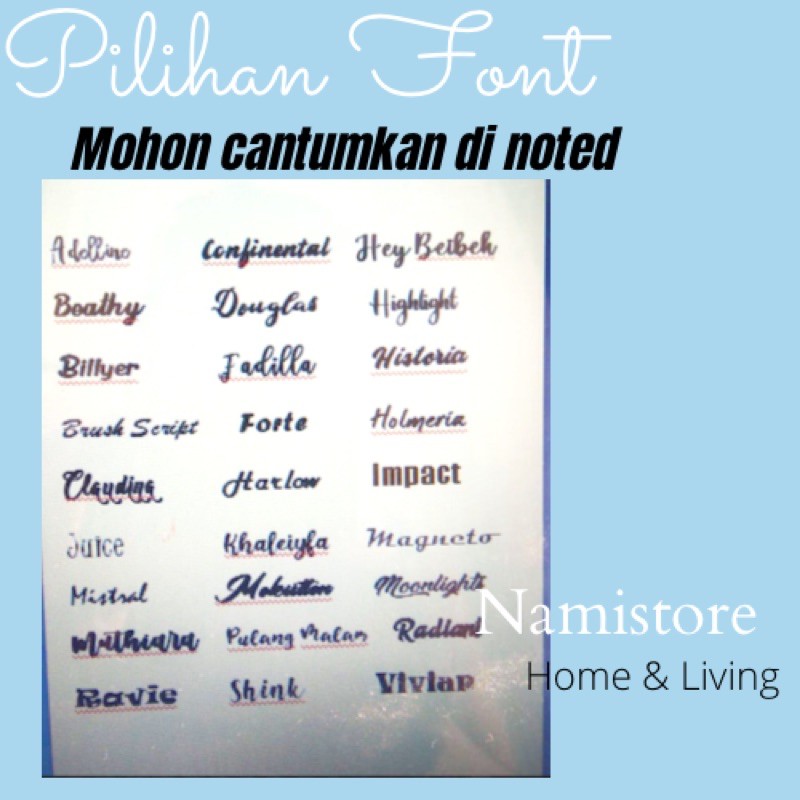 Pilihan Font
Mohon cantumkan di noted
Adellino Confinental Hey Beibeh
Beathy Douglas Highlight
Billyer Fadilla Historia
Brush Script Forte Holmeria
Clauding Harlow Impact
Juice Khaleiyfa Magneto
Mistral Mokutton Moonlights
Muthiara Pulang Malam Radiant
Ravie Shink Vivian
Namistore
Home & Living